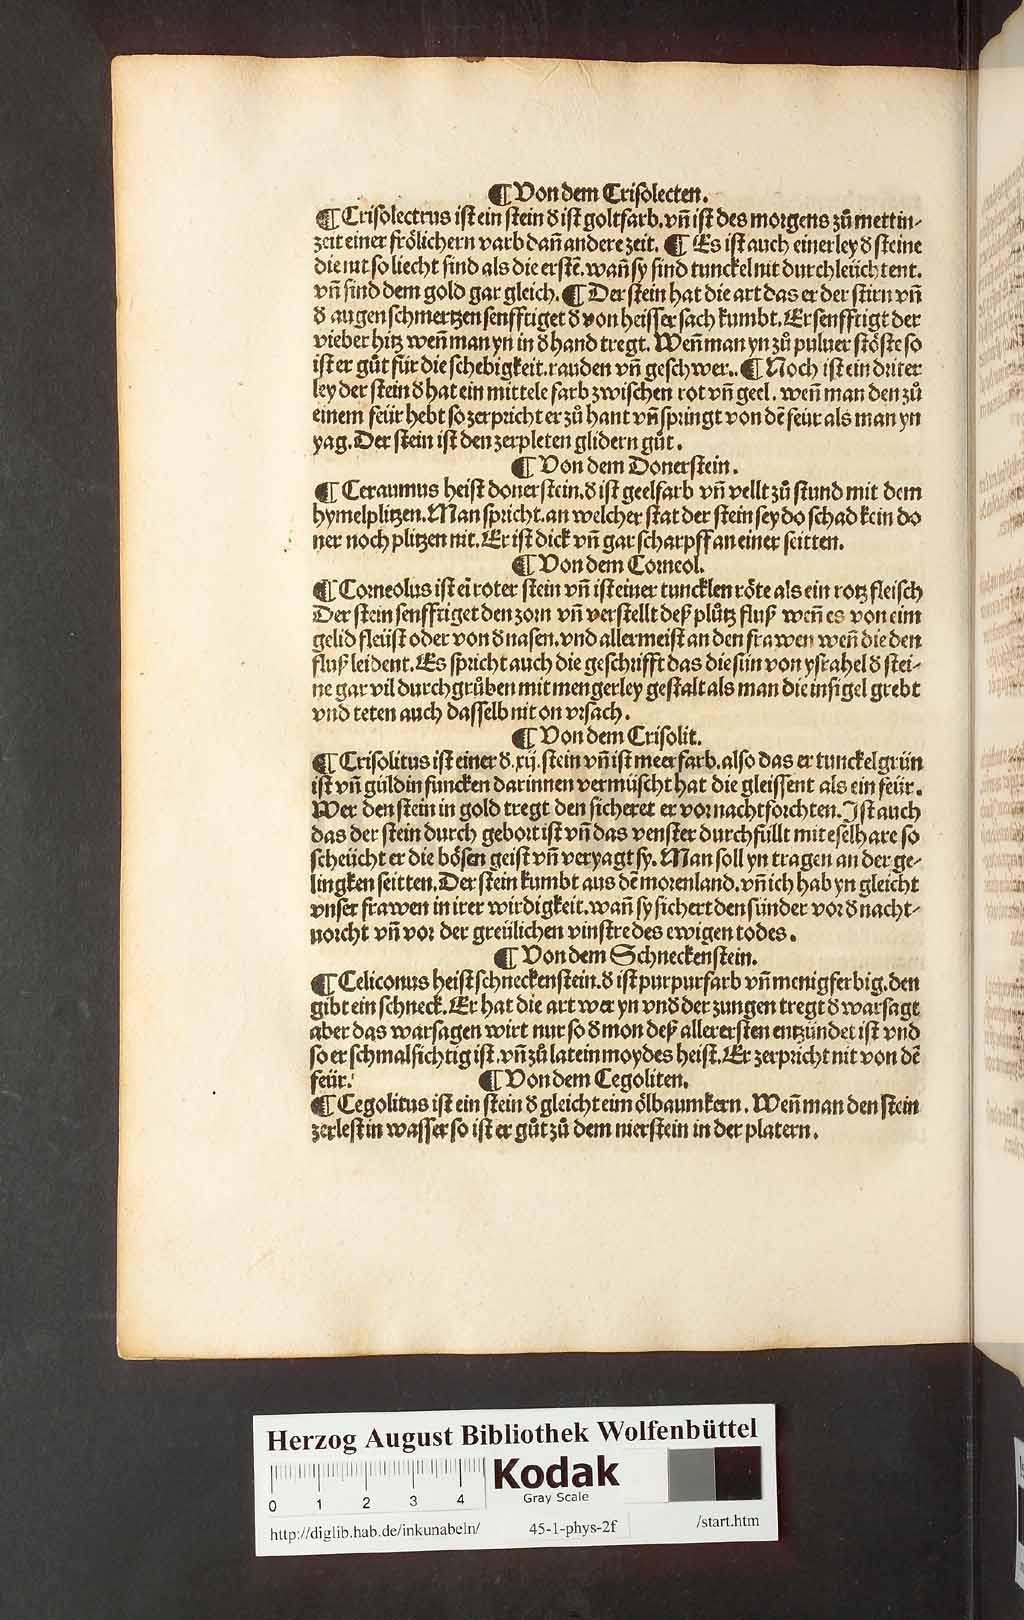 ¶ Von dem Crisolecten.
¶ Crisolectrus ist ein stein d̕ ist goltfarb. vn̄ ist des morgens zů mettin⸗
zeit einer frölichern varb dan̄ andere zeit. ¶ Es ist auch einerley d̕ steine
die nit so liecht sind als die erstē. wan̄ sy sind tunckel nit durchleüchtent.
vn̄ sind dem gold gar gleich. ¶ Der stein hat die art das er der stirn vn̄
d̕ augen schmertzen senfftiget d̕ von heisser sach kumbt. Er senfftigt der
vieber hitz wen̄ man yn in d̕ hand tregt. Wen̄ man yn zů puluer stöste so
ist er gůt für die schebigkeit. rauden vn̄ geschwer.. ¶ Noch ist ein dritter
ley der stein d̕ hat ein mittele farb zwischen rot vn̄ geel. wen̄ man den zů
einem feür hebt so zerpricht er zů hant vn̄ springt von dē feür als man yn
yag. Der stein ist den zerpleten glidern gůt.
¶ Von dem Donerstein.
¶ Ceraunius heist donerstein. d̕ ist geelfarb vn̄ vellt zů stund mit dem
hymelplitzen. Man spricht. an welcher stat der stein sey do schad kein do
ner noch plitzen nit. Er ist dick vn̄ gar scharpff an einer seitten.
¶ Von dem Corneol.
¶ Corneolus ist eī roter stein vn̄ ist einer tuncklen röte als ein rotz fleisch
Der stein senfftiget den zorn vn̄ verstellt deß plůtz fluß wen̄ es von eim
gelid fleüst oder von d̕ nasen. vnd allermeist an den frawen wen̄ die den
fluß leident. Es spricht auch die geschrifft das die sün von ysrahel d̕ stei⸗
ne gar vil durchgrůben mit mengerley gestalt als man die insigel grebt
vnd teten auch dasselb nit on vrsach.
¶ Von dem Crisolit.
¶ Crisolitus ist einer d̕ .xij. stein vn̄ ist meerfarb. also das er tunckelgrün
ist vn̄ güldin funcken darinnen vermüscht hat die gleissent als ein feür.
Wer den stein in gold tregt den sicheret er vor nachtforchten. Ist auch
das der stein durch gebort ist vn̄ das venster durchfüllt mit eselhare so
scheücht er die bösen geist vn̄ veryagt sy. Man soll yn tragen an der ge⸗
lingken seitten. Der stein kumbt aus dē morenland. vn̄ ich hab yn gleicht
vnser frawen in irer wirdigkeit. wan̄ sy sichert den sünder vor d̕ nacht⸗
uorcht vn̄ vor der greülichen vinstre des ewigen todes.
¶ Von dem Schneckenstein.
¶ Celiconus heist schneckenstein. d̕ ist purpurfarb vn̄ menigferbig. den
gibt ein schneck. Er hat die art wer yn vnd der zungen tregt d̕ warsagt
aber das warsagen wirt nur so d̕ mon deß allerersten entzündet ist vnd
so er schmalsichtig ist. vn̄ zů latein moydes heist. Er zerpricht nit von dē
feür. ¶ Von dem Cegoliten.
¶ Cegolitus ist ein stein d̕ gleicht eim ölbaumkern. Wen̄ man den stein
zerlest in wasser so ist er gůt zů dem nierstein in der platern.
Herzog August Bibliothek Wolfenbüttel
Kodak
Gray Scale
0 1 2 3 4
http://diglib.hab.de/inkunabeln/ 45-1-phys-2f /start.htm